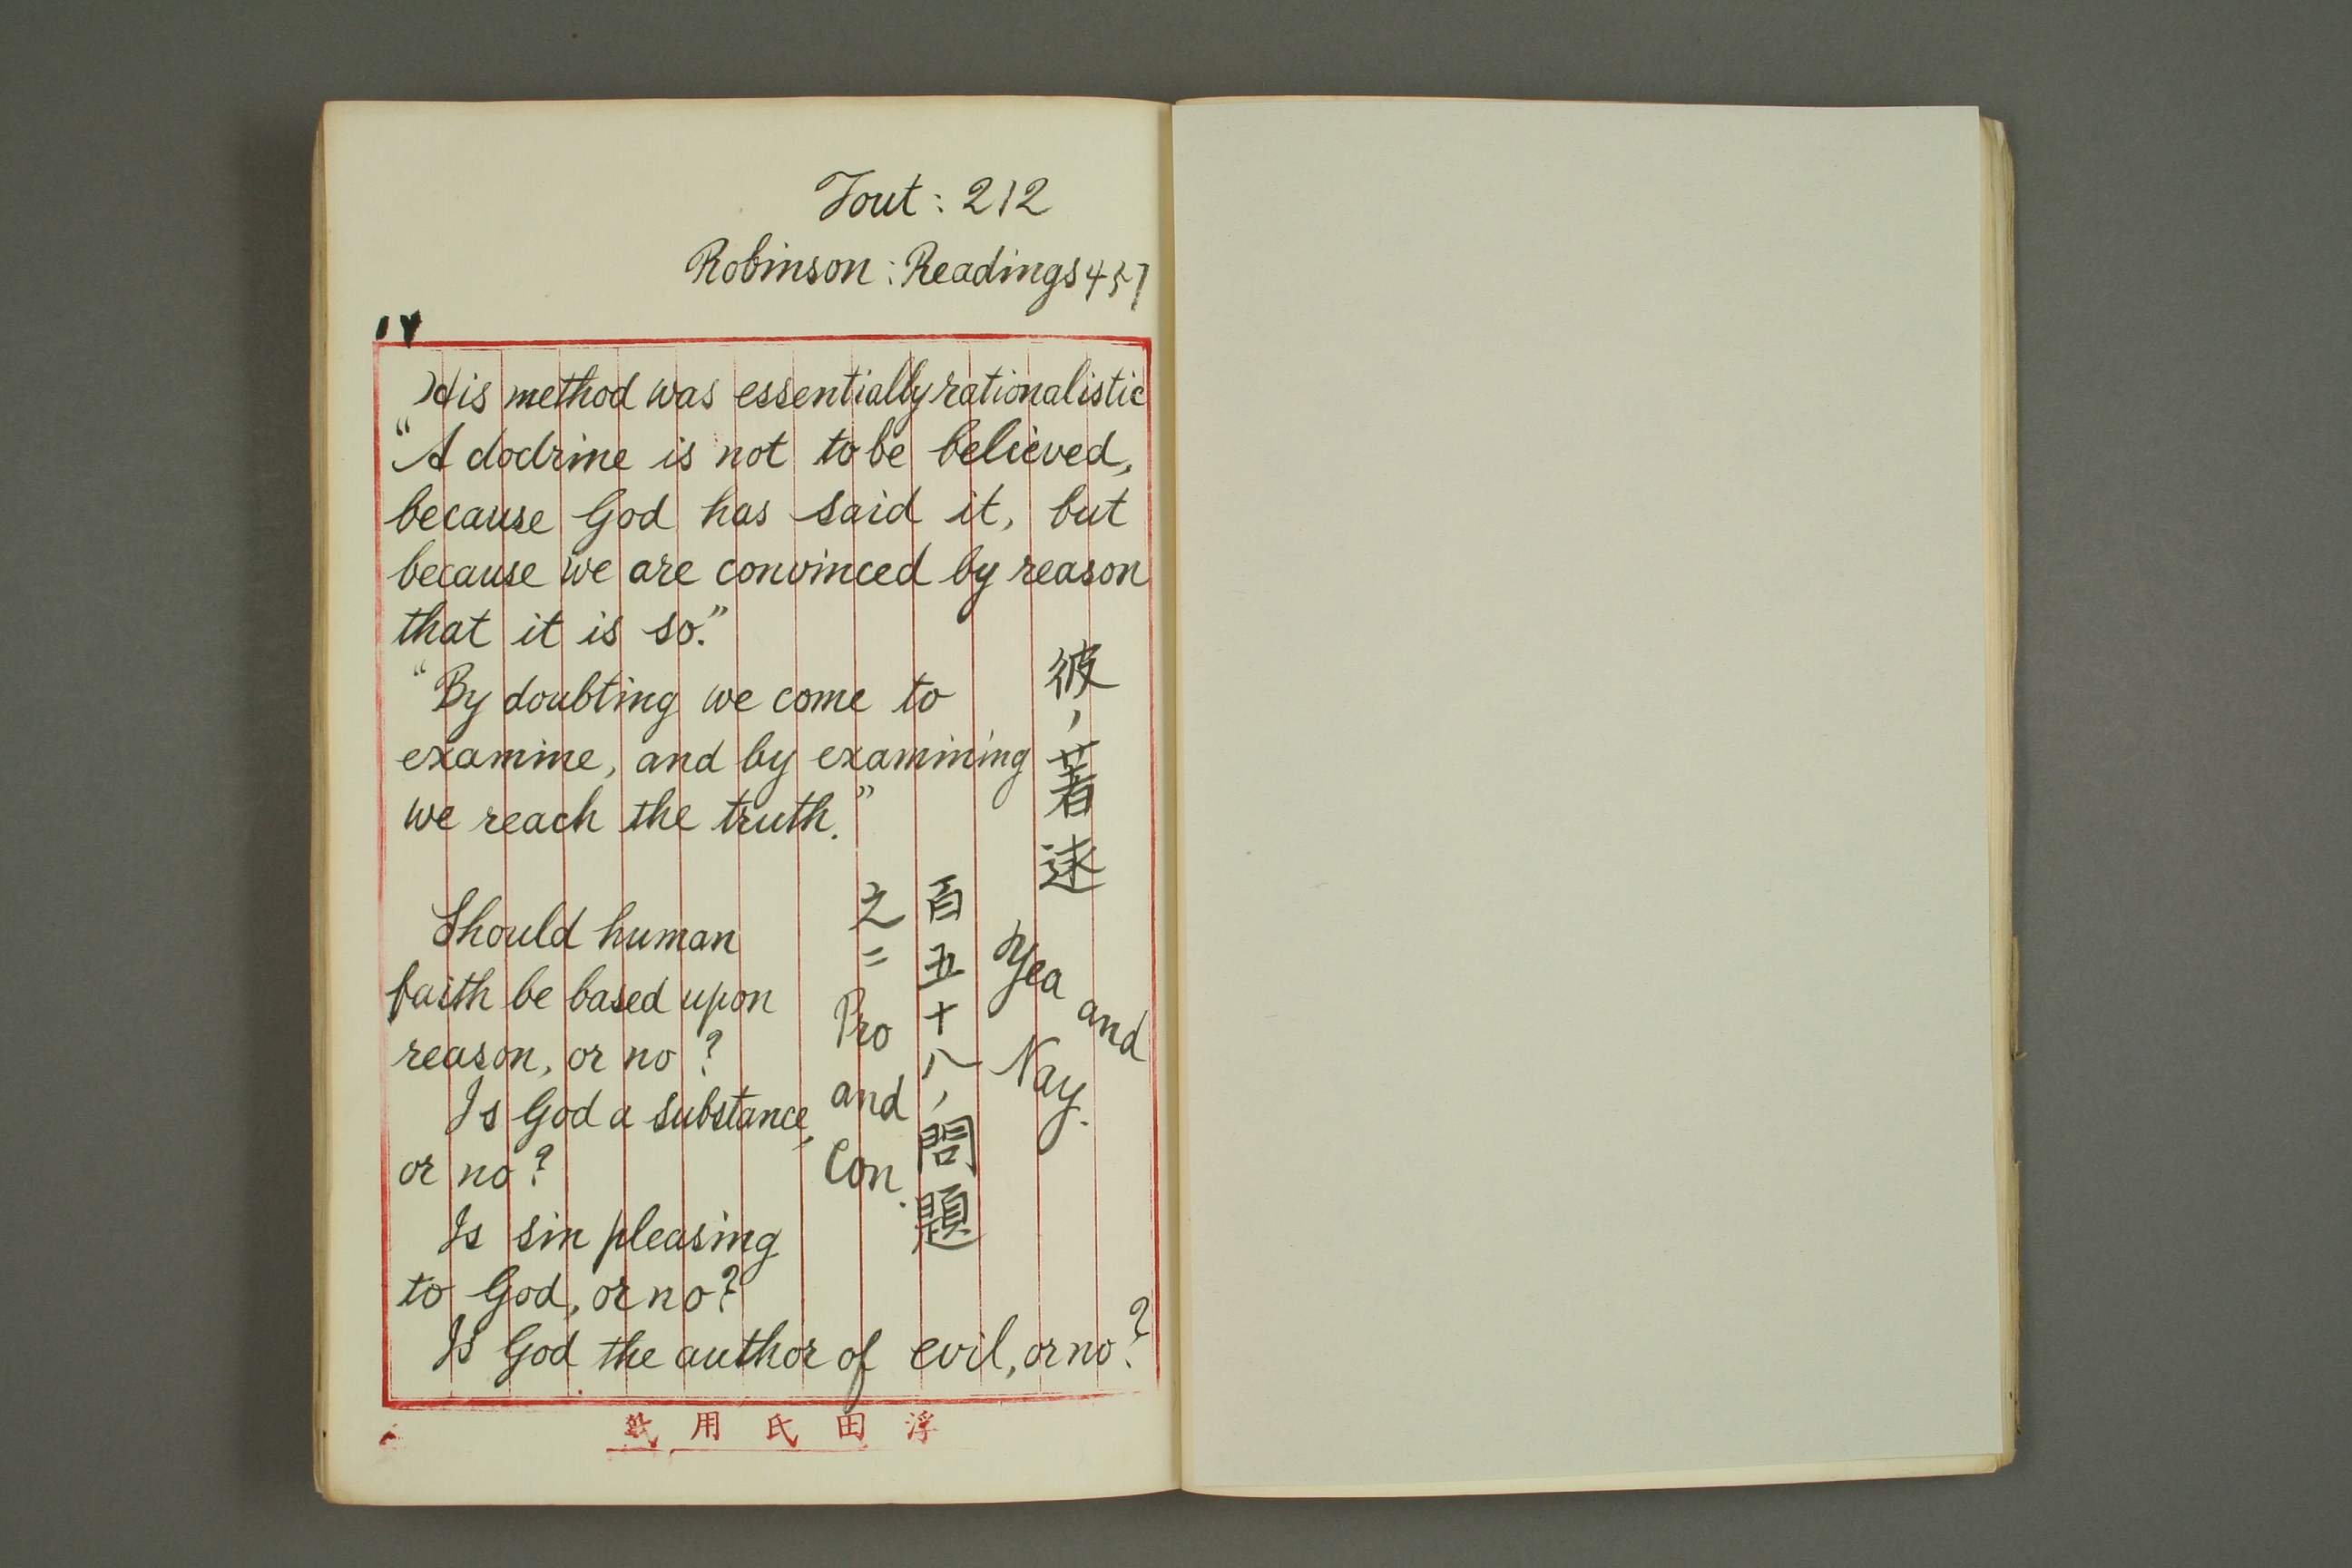 Tout: 212
Robinson: Readings 457
17
His method was essentially rationalistic
"A doctrine is not to be believed,
because God has said it, but
because we are convinced by reason
that it is so."
"By doubting we come to
examine, and by examining
we reach the truth."
彼ノ著述
Yea
and
Nay.
百五十八ノ問題
之ニ
Pro
and
Con.
Should human
faith be based upon
reason, or no?
Is God a substance,
or no?
Is sin pleasing
to God, or no?
Is God the author of evil, or no?
浮田氏用紙